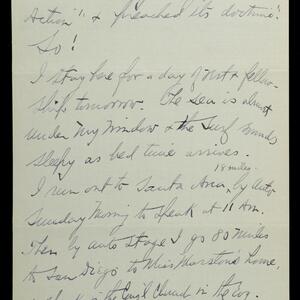 Action" & preached its doctrine."
So!
I stay here for a day of rest & fellow-
ship tomorrow. The sea is almost
under my window & the surf sounds
sleepy as bed time arrives.
18 miles
I run out to Santa Ana, by auto
Sunday Morning to speak at 11 Am.
Then by auto stage I go 80 miles
to San Diego to Miss Marston's home,
speak in the Cong'l Church in the eve.